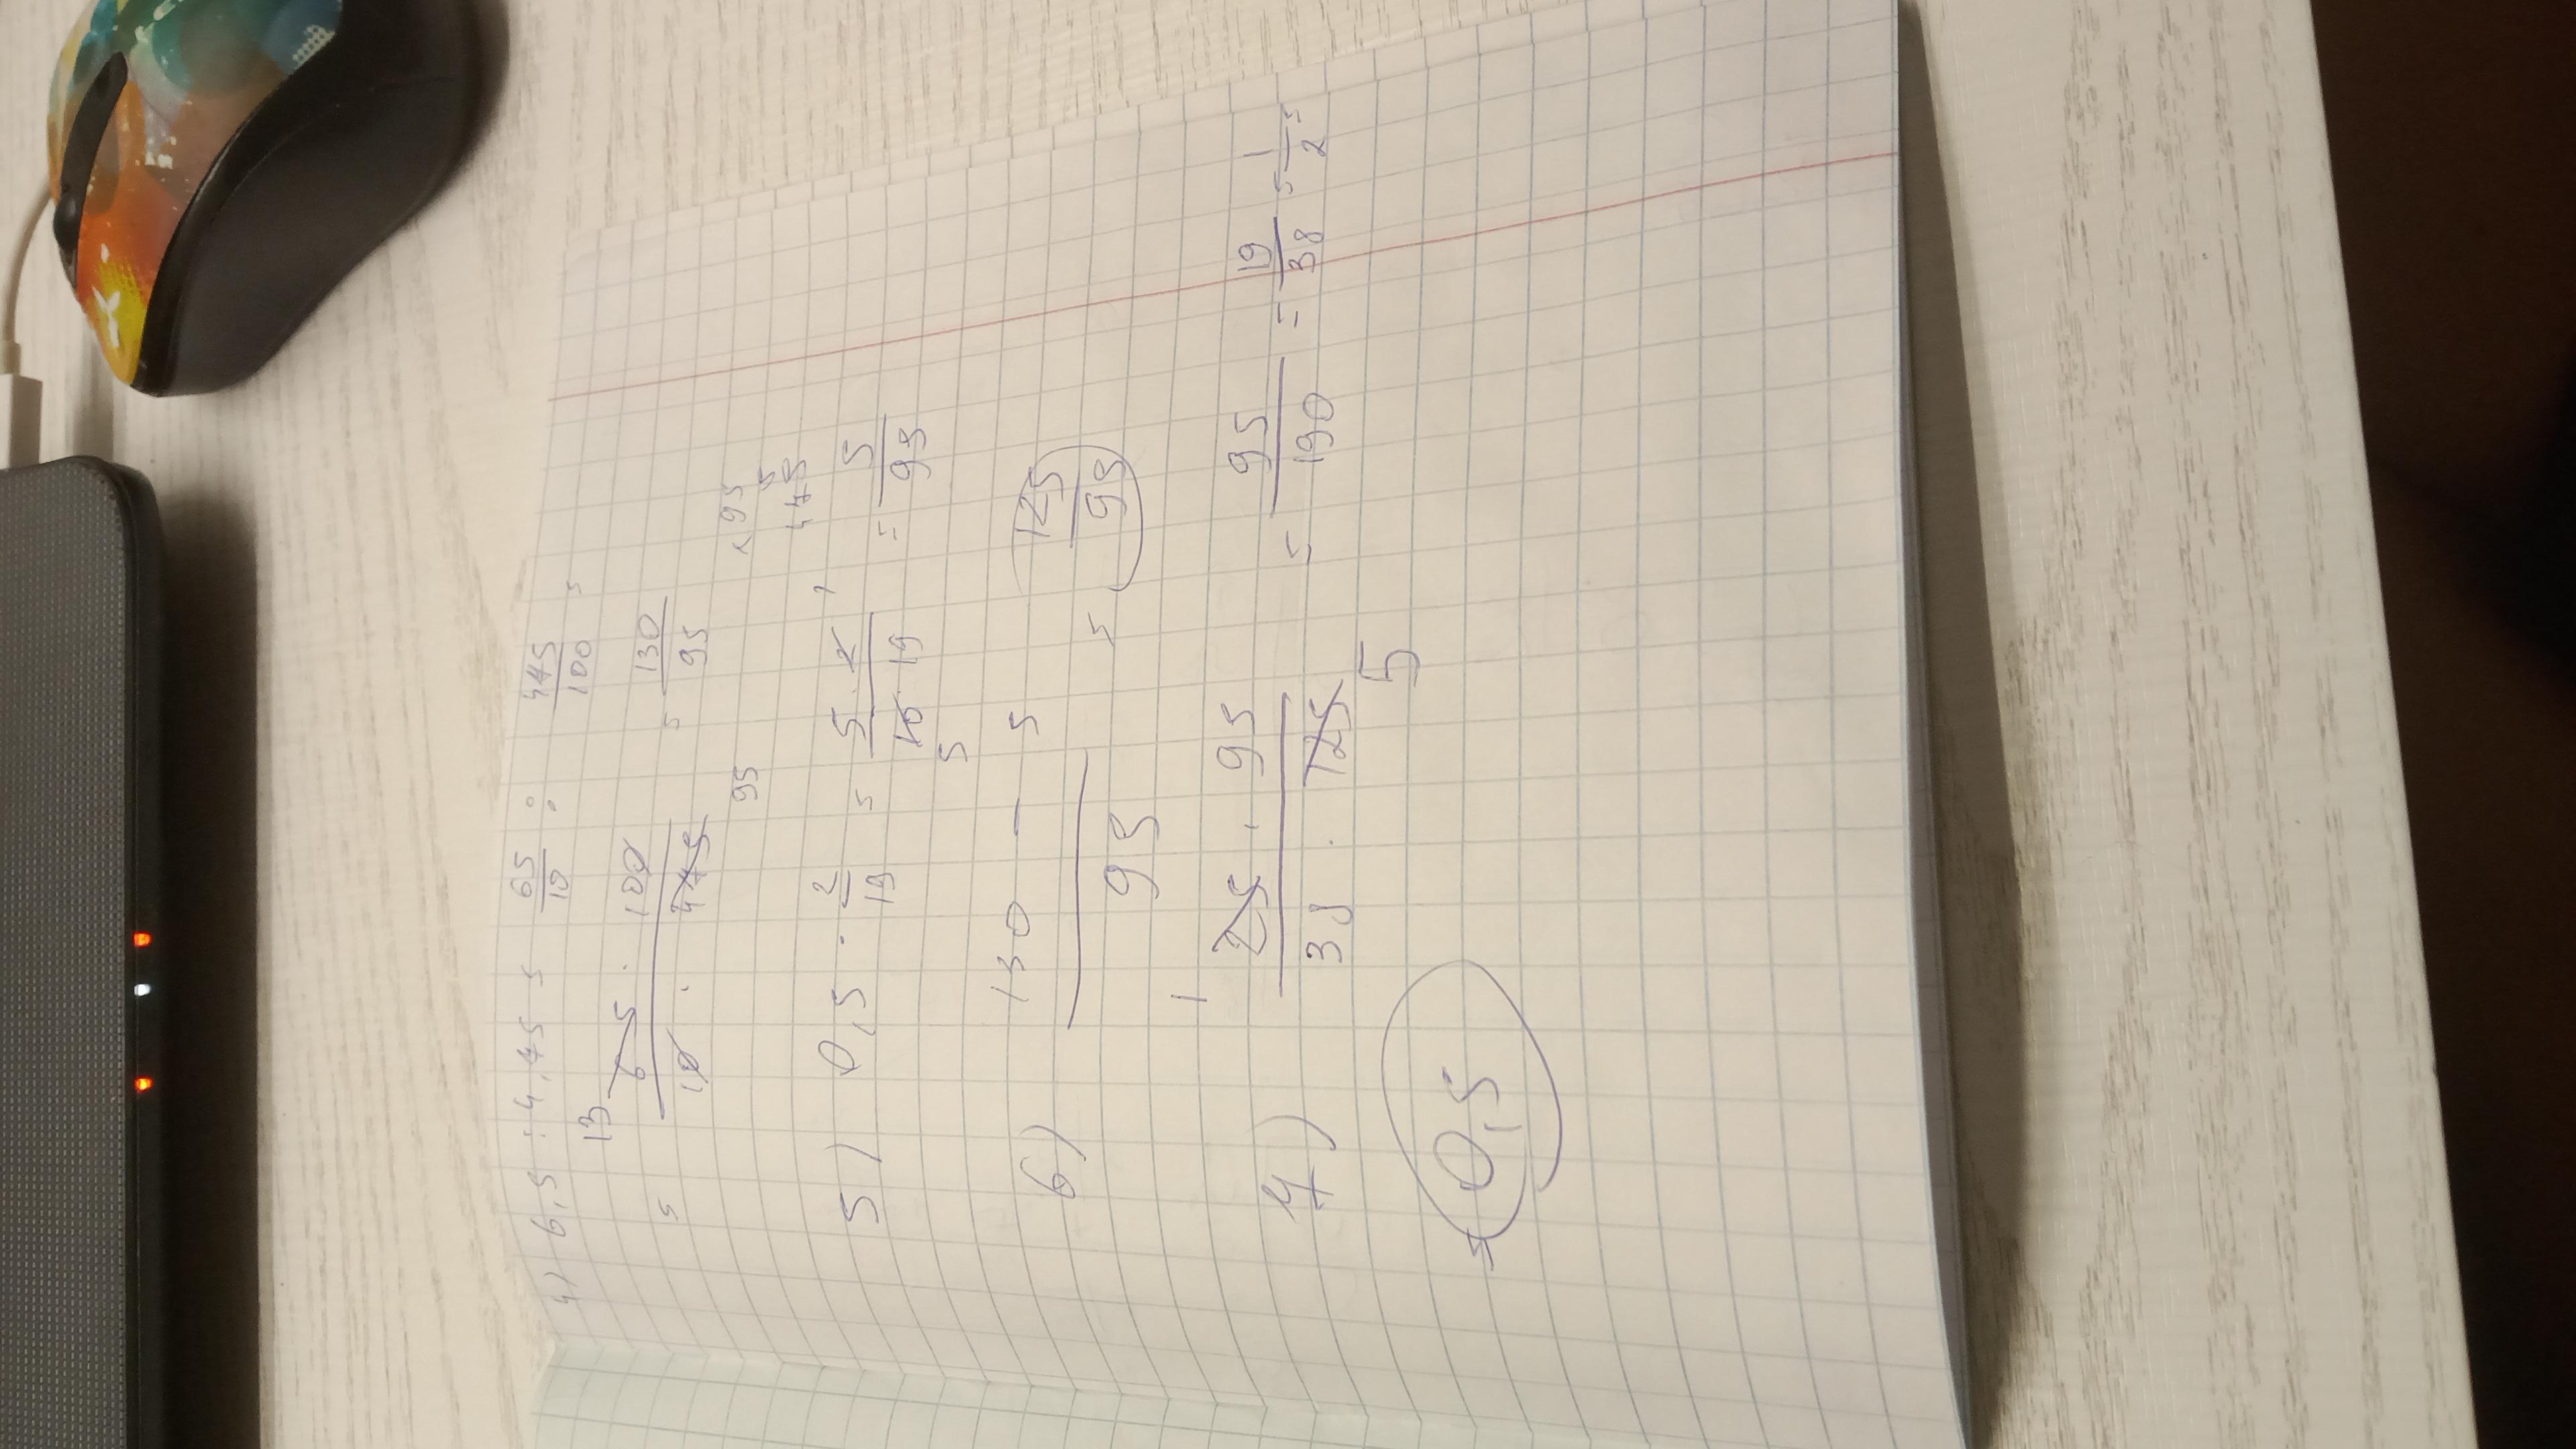 4) 6,5 : 4,75 = 65/10 : 475/100 =
= 13 65 · 100 / 10 · 475 95 = 130/95
× 95
5
475
5) 0,5 · 2/19 = 5 · 2 1 / 10 5 · 19 = 5/95
6) 130 - 5 / 95 = 125/95
7) 1 25 · 95 / 38 · 125 5 = 95/190 = 19/38 = 1/2 =
= 0,5